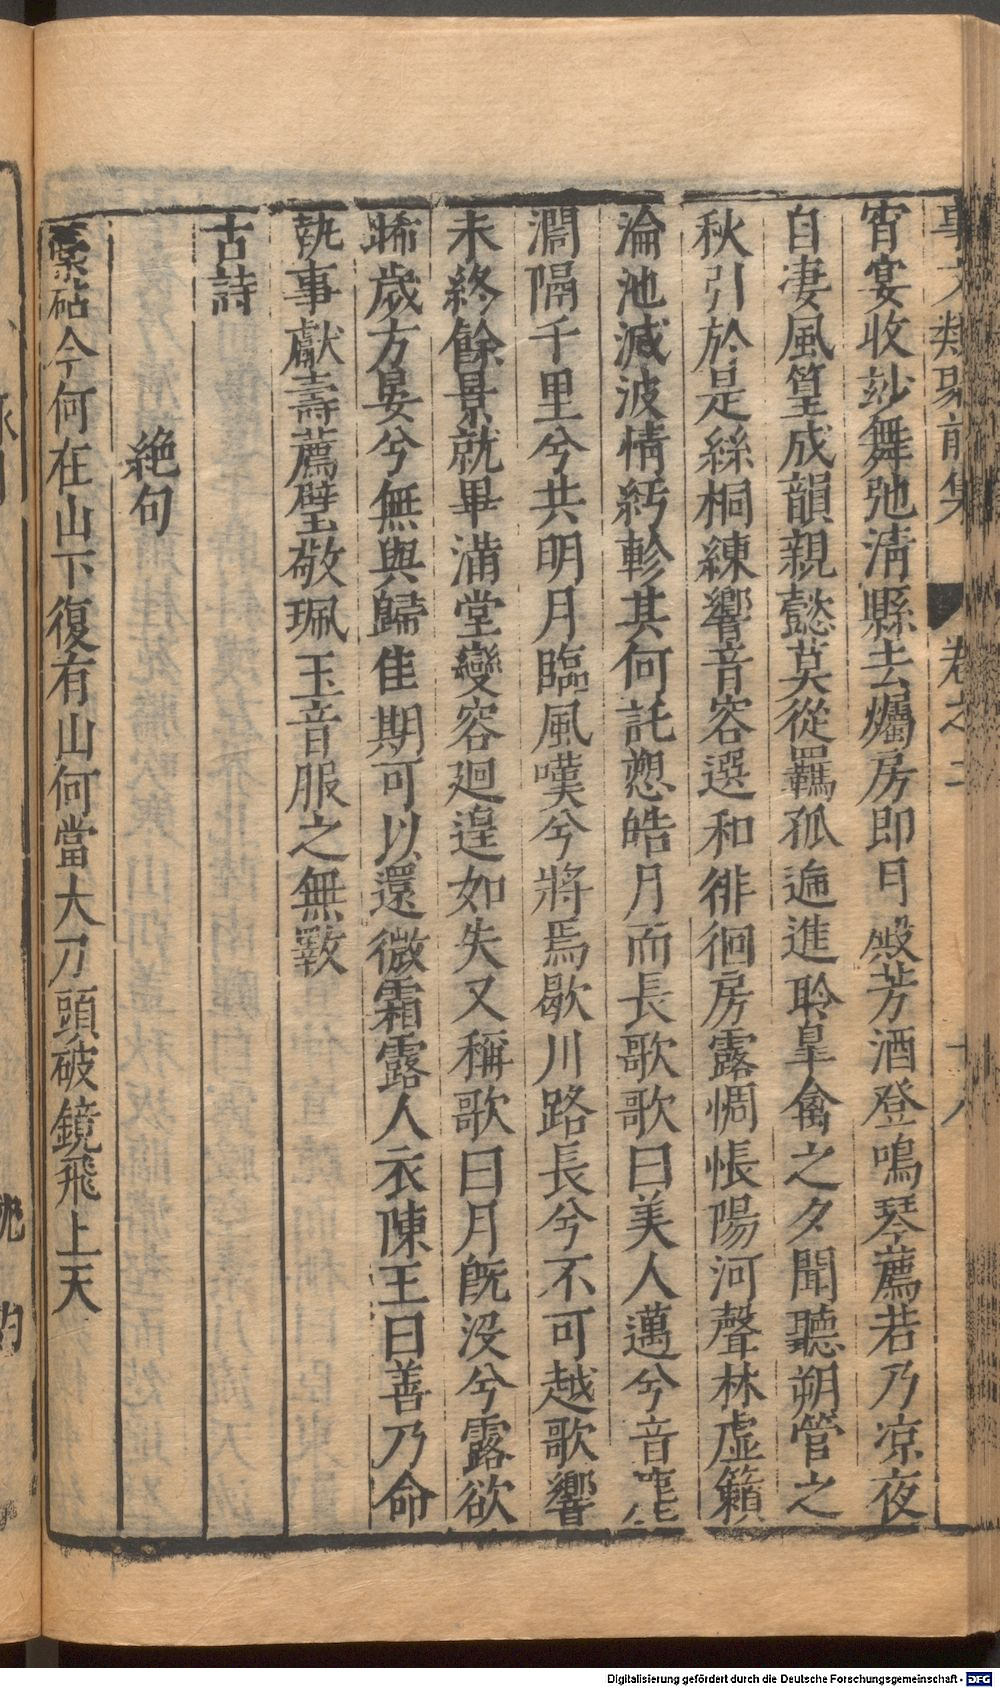 事文類聚前集 卷之二 十八
宵宴收妙舞弛淸縣去燭房即月殿芳酒登鳴琴薦若乃凉夜
自凄風篁成韻親懿莫從羈孤遞進聆皐禽之夕聞聽朔管之
秋引於是絲桐練響音容選和徘徊房露惆悵陽河聲林虛籟
淪池滅波情紆軫其何託愬皓月而長歌歌曰美人邁兮音塵
濶隔千里兮共明月臨風嘆兮將焉歇川路長兮不可越歌響
未終餘景就畢滿堂變容廻遑如失又稱歌曰月旣沒兮露欲
晞歲方晏兮無與歸佳期可以還微霜露人衣陳王曰善乃命
執事獻壽薦璧敬珮玉音服之無斁
古詩
絶句
藁砧今何在山下復有山何當大刀頭破鏡飛上天
Digitalisierung gefördert durch die Deutsche Forschungsgemeinschaft - DFG